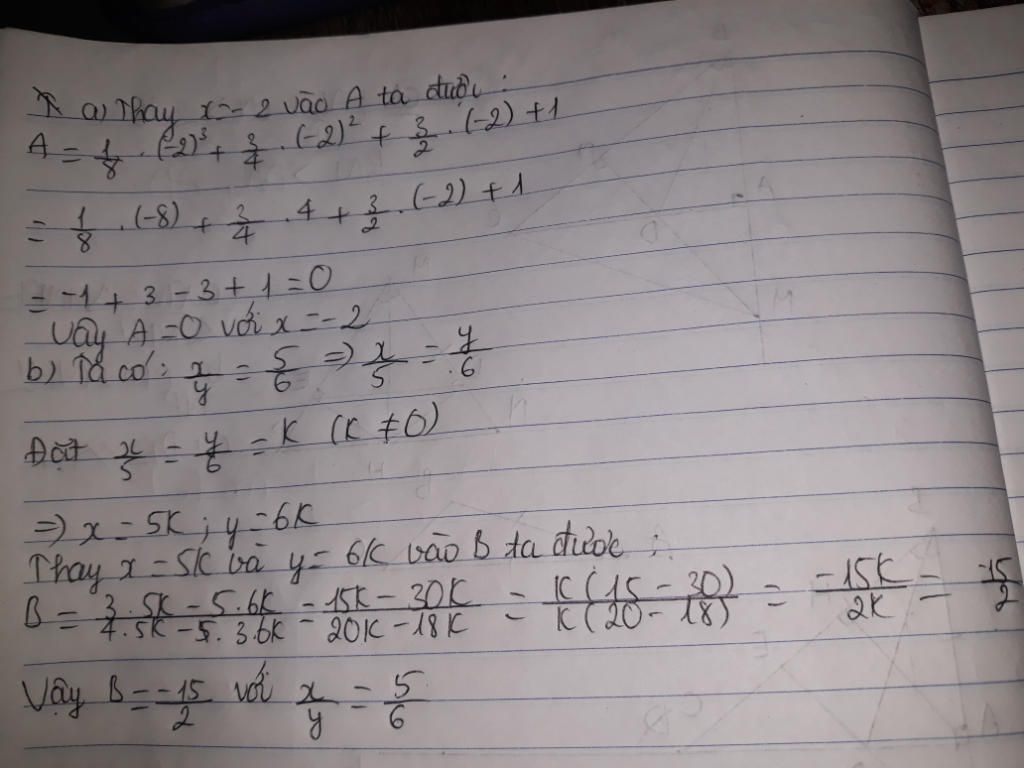 a) Thay x = -2 vào A ta được :
A = 1/8 . (-2)³ + 3/4 . (-2)² + 3/2 . (-2) + 1
= 1/8 . (-8) + 3/4 . 4 + 3/2 . (-2) + 1
= -1 + 3 - 3 + 1 = 0
Vậy A = 0 với x = -2
b) Ta có : x/y = 5/6 => x/5 = y/6
Đặt x/5 = y/6 = K (K ≠ 0)
=> x = 5K ; y = 6K
Thay x = 5K và y = 6K vào B ta được :
B = (3.5K - 5.6K)/(4.5K - 3.6K) = (15K - 30K)/(20K - 18K) = K(15 - 30)/K(20 - 18) = -15K/2K = -15/2
Vậy B = -15/2 với x/y = 5/6